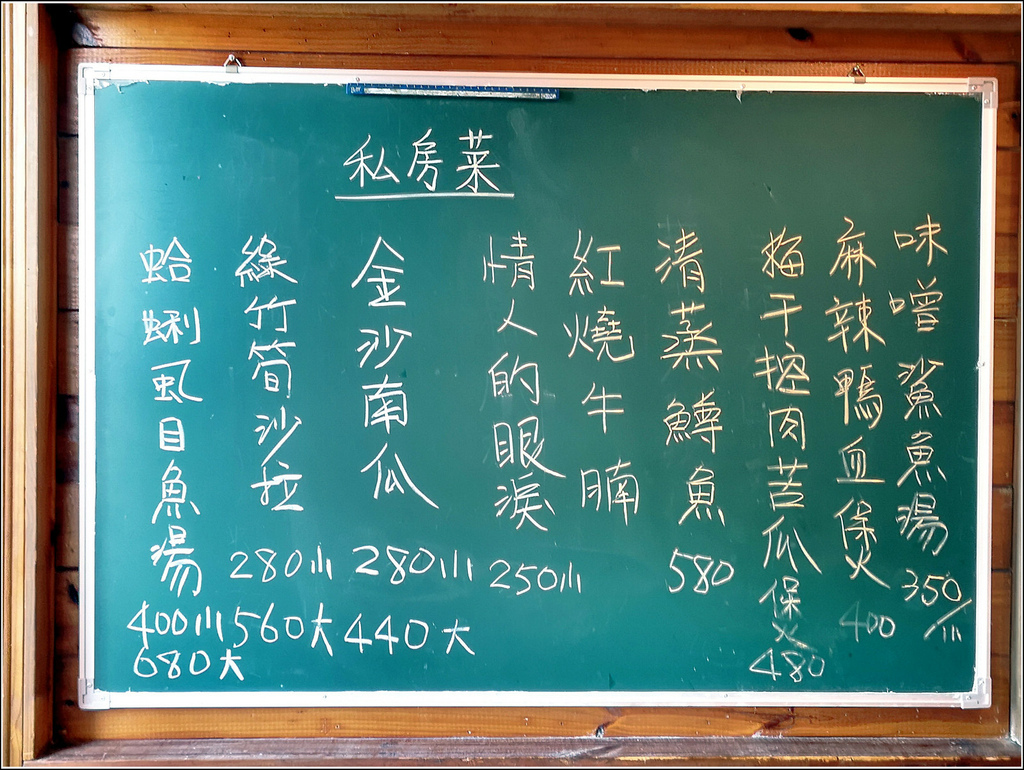 私房菜
味噌鯊魚湯
350/小
麻辣鴨血煲
400
梅干控肉苦瓜煲
480
清蒸鱒魚
580
紅燒牛腩
情人的眼淚
250小
金沙南瓜
280小
440大
綠竹筍沙拉
280小
560大
蛤蜊虱目魚湯
400小
680大